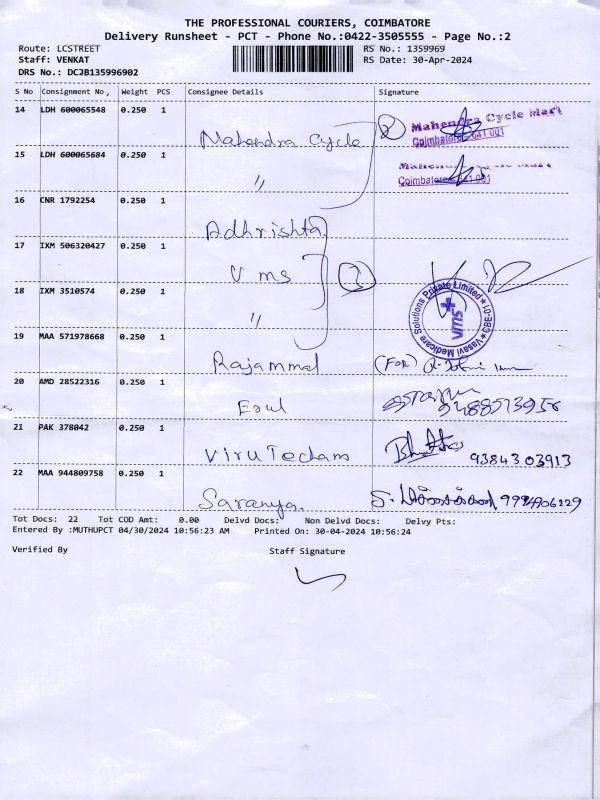 THE PROFESSIONAL COURIERS, COIMBATORE
Delivery Runsheet - PCT - Phone No.:0422-3505555 - Page No.:2
Route: LCSTREET RS No.: 1359969
Staff: VENKAT RS Date: 30-Apr-2024
DRS No.: DCJB135996902
S No Consignment No, Weight PCS Consignee Details Signature
14 LDH 600065548 0.250 1
Mahendra Cycle 2 Mahendra Cycle Mart
Coimbatore-641 001
15 LDH 600065684 0.250 1
"
Coimbatore-641 001
16 CNR 1792254 0.250 1
Adhrishta
17 IXM 506320427 0.250 1
Vms
18 IXM 3510574 0.250 1
"
Vasavi Medicare Solutions Private Limited CBE-01
vms
19 MAA 571978668 0.250 1
Rajammal (FOR)
20 AMD 28522316 0.250 1
21 PAK 378042 0.250 1
Viru Techams 9384303913
22 MAA 944809758 0.250 1
Saranya. 9994906229
Tot Docs: 22 Tot COD Amt: 0.00 Delvd Docs: Non Delvd Docs: Delvy Pts:
Entered By :MUTHUPCT 04/30/2024 10:56:23 AM Printed On: 30-04-2024 10:56:24
Verified By Staff Signature